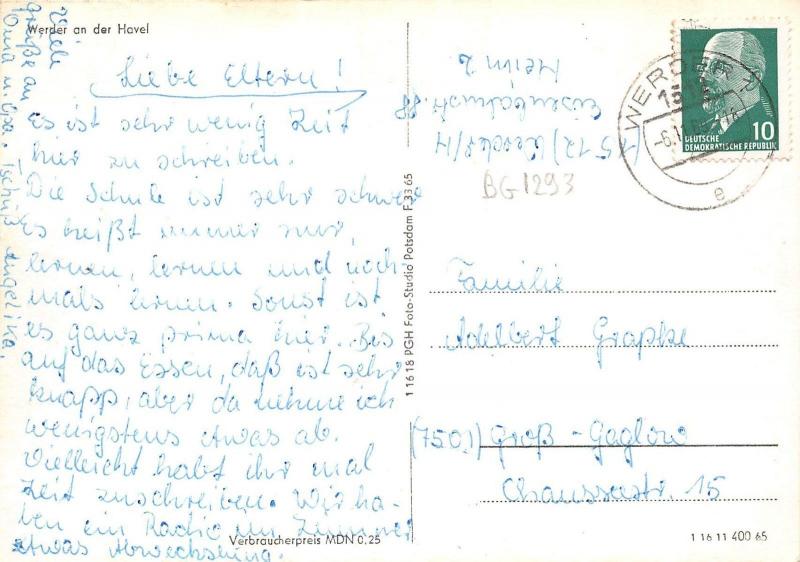 Werder an der Havel
Liebe Eltern!
Es ist sehr wenig Zeit
hier zu schreiben.
Die Schule ist sehr schwer
Es heißt immer nur,
lernen, lernen und noch-
mals lernen. Sonst ist
es ganz prima hier. Bis
auf das Essen, daß ist sehr
knapp, aber da nehme ich
wenigstens etwas ab.
Vielleicht habt ihr mal
Zeit zuschreiben. Wir ha-
ben ein Radio im Zimmer
etwas Abwechslung.
Viele
Grüße an
Oma u. Opa. Tschüß Angelika.
Verbraucherpreis MDN 0,25
1 16 18 PGH Foto-Studio Potsdam F 33 65
(1512) Werder/H
Eisenbahnstr. 88
Heim 2
BG1293
WERDER
1512
-6.11.
e
10
DEUTSCHE
DEMOKRATISCHE REPUBLIK
Familie
Adelbert Grapke
(7501) Groß-Gaglow
Chausseestr. 15
1 16 11 400 65